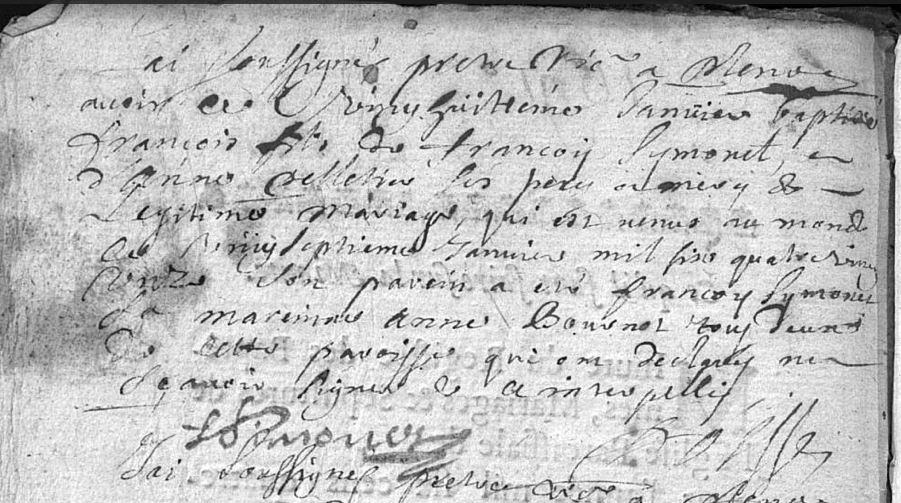 Jai soussigné prêtre Vic^re a
avoir ce Vingt huittieme Janvier baptisé
François fils de françoy Symonet et
d'Anne pelletier ses pere et mere de
Legitime Mariage, qui est venu au monde
ce Vingt septieme Janvier mil six quatre vingt
onze Son parein a eté françoy Symonet
Sa mareinne Anne Bournot tous deux
de cette paroisse qui ont declaré ne
sçavoir signer de ce interpellé
Jai soussigné prêtre Vic^re a